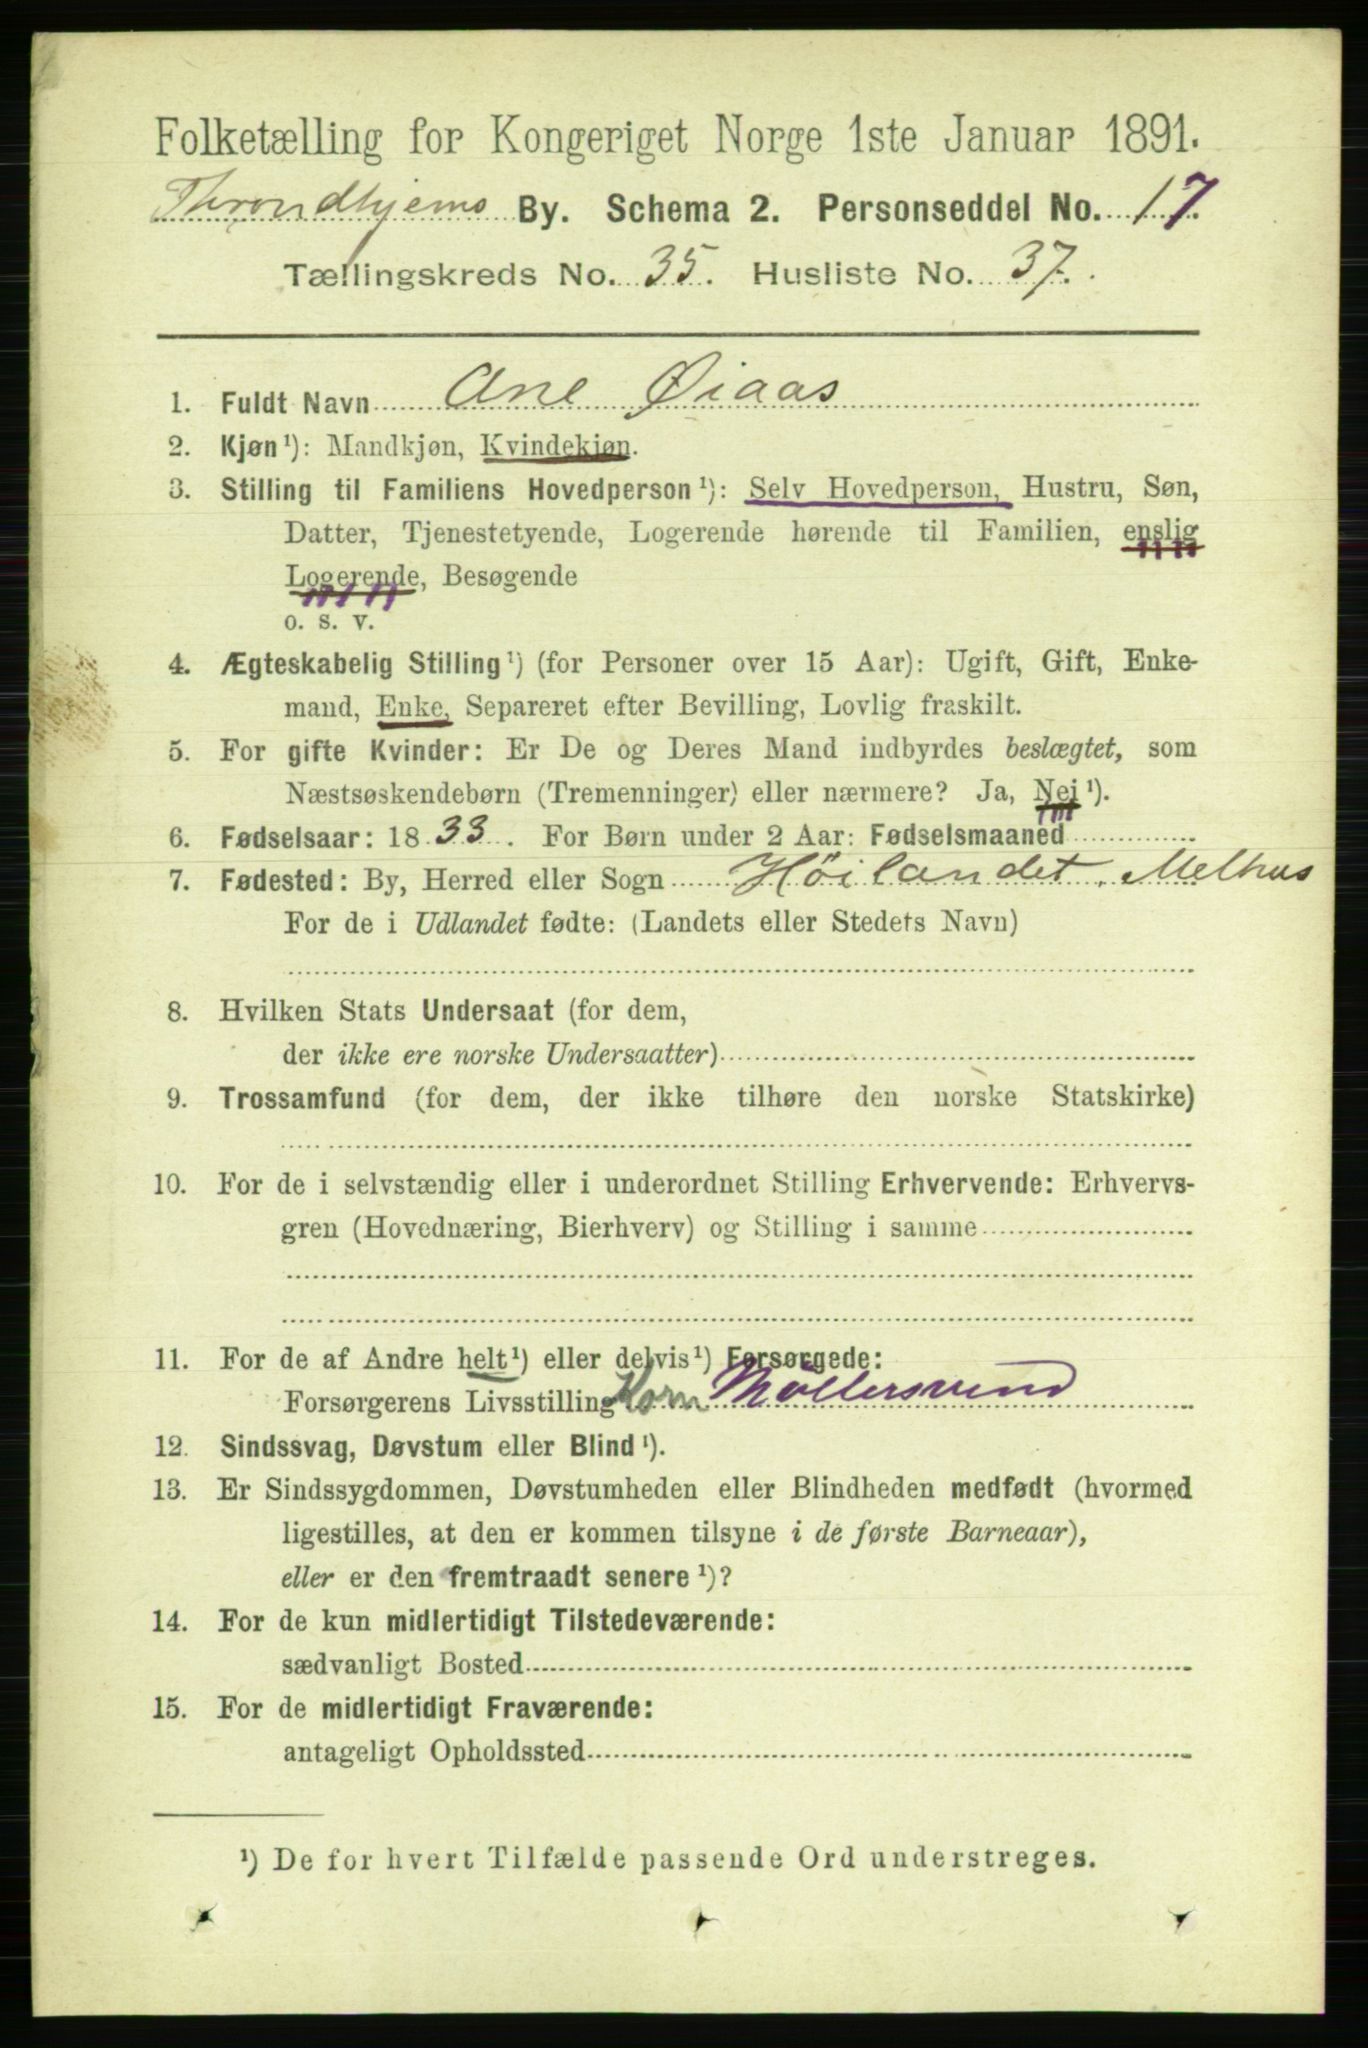 Folketælling for Kongeriget Norge 1ste Januar 1891.
Throndhjems By. Schema 2. Personseddel No. 17.
Tællingskreds No. 35. Husliste No. 37.
1. Fuldt Navn Ane Øiaas
2. Kjøn¹): Mandkjøn, Kvindekjøn.
3. Stilling til Familiens Hovedperson¹): Selv Hovedperson, Hustru, Søn,
Datter, Tjenestetyende, Logerende hørende til Familien, enslig
Logerende, Besøgende
o. s. v.
4. Ægteskabelig Stilling¹) (for Personer over 15 Aar): Ugift, Gift, Enke-
mand, Enke, Separeret efter Bevilling, Lovlig fraskilt.
5. For gifte Kvinder: Er De og Deres Mand indbyrdes beslægtet, som
Næstsøskendebørn (Tremenninger) eller nærmere? Ja, Nej¹).
6. Fødselsaar: 1833. For Børn under 2 Aar: Fødselsmaaned
7. Fødested: By, Herred eller Sogn Höilandet, Melhus
For de i Udlandet fødte: (Landets eller Stedets Navn)
8. Hvilken Stats Undersaat (for dem,
der ikke ere norske Undersaatter)
9. Trossamfund (for dem, der ikke tilhøre den norske Statskirke)
10. For de i selvstændig eller i underordnet Stilling Erhvervende: Erhvervs-
gren (Hovednæring, Bierhverv) og Stilling i samme
11. For de af Andre helt¹) eller delvis¹) Forsørgede:
Forsørgerens Livsstilling Korn Möllersvend
12. Sindssvag, Døvstum eller Blind¹).
13. Er Sindssygdommen, Døvstumheden eller Blindheden medfødt (hvormed
ligestilles, at den er kommen tilsyne i de første Barneaar),
eller er den fremtraadt senere¹)?
14. For de kun midlertidigt Tilstedeværende:
sædvanligt Bosted
15. For de midlertidigt Fraværende:
antageligt Opholdssted
¹) De for hvert Tilfælde passende Ord understreges.